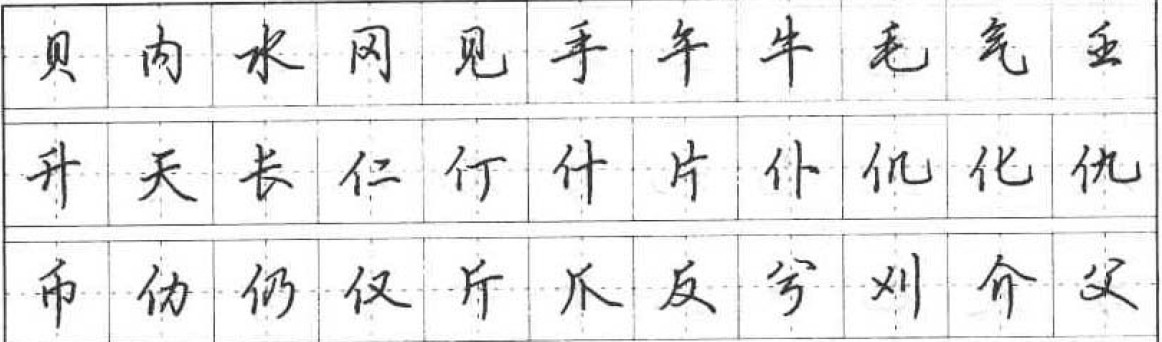 贝内水冈见手午牛毛气壬
升夭长仁仃什片仆仉化仇
币仂仍仅斤爪反兮刈介父